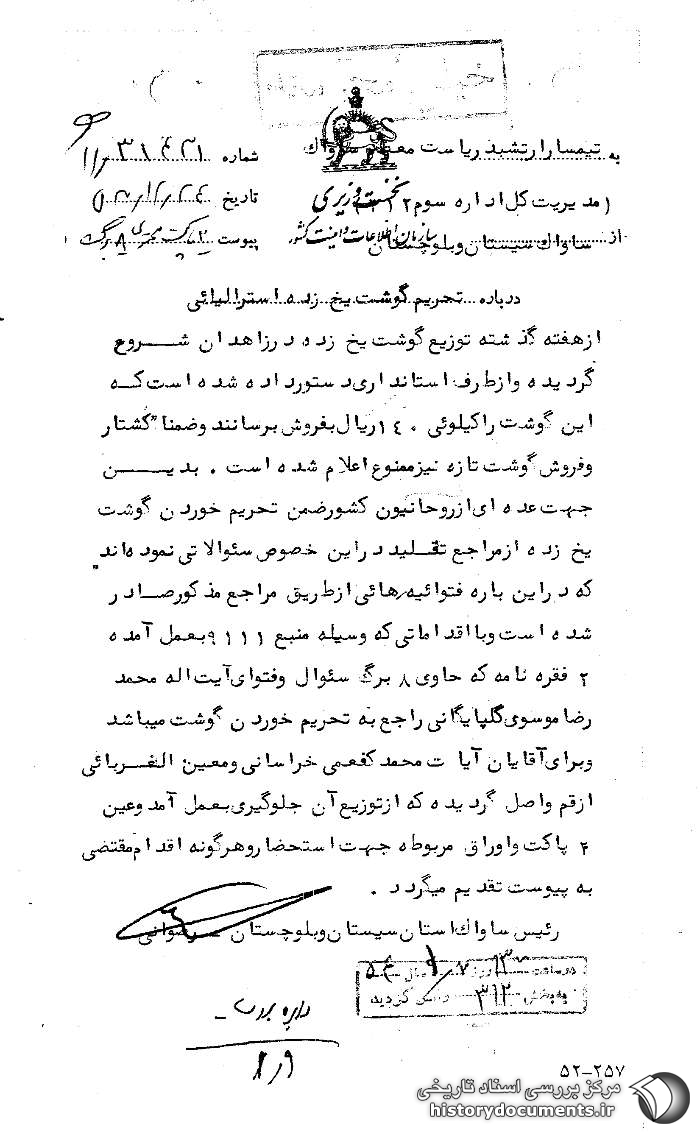 به تیمسار ارتشبد ریاست معظم ساواک
شماره ۳۱۴۳۱/
(مدیریت کل اداره سوم ۳۱۲)
نخست وزیری
تاریخ
از ساواک سیستان و بلوچستان
سازمان اطلاعات و امنیت کشور
پیوست ۲ پاکت ۸ برگ
درباره تحریم گوشت یخ زده استرالیائی
از هفته گذشته توزیع گوشت یخ زده در زاهدان شروع
گردیده و از طرف استانداری دستور داده شده است که
این گوشت را کیلوئی ۱۴۰ ریال بفروش برسانند وضمنا" کشتار
و فروش گوشت تازه نیز ممنوع اعلام شده است . بدین
جهت عده ای از روحانیون کشور ضمن تحریم خوردن گوشت
یخ زده از مراجع تقلید در این خصوص سئوالاتی نموده اند
که در این باره فتوائیه هائی از طریق مراجع مذکور صادر
شده است و با اقداماتی که وسیله منبع ۹۱۱۱ بعمل آمده
۲ فقره نامه که حاوی ۸ برگ سئوال وفتوای آیت اله محمد
رضا موسوی گلپایگانی راجع به تحریم خوردن گوشت میباشد
و برای آقایان آیات محمد کفعمی خراسانی و معین الغربائی
از قم واصل گردیده که از توزیع آن جلوگیری بعمل آمد وعین
۲ پاکت و اوراق مربوطه جهت استحضار و هرگونه اقدام مقتضی
به پیوست تقدیم میگردد .
رئیس ساواک استان سیستان و بلوچستان رضوانی
در ساعت روز ۷/ سال ۵۴
به بخش ۳۱۲ واصل گردید
۵۲-۲۵۷
مرکز بررسی اسناد تاریخی
historydocuments.ir